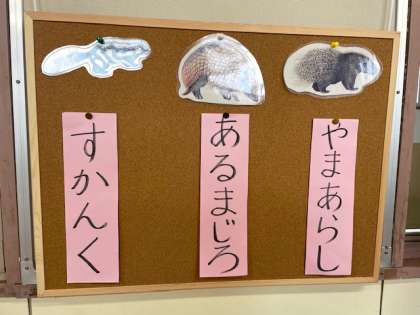 やまあらし
あるまじろ
すかんく